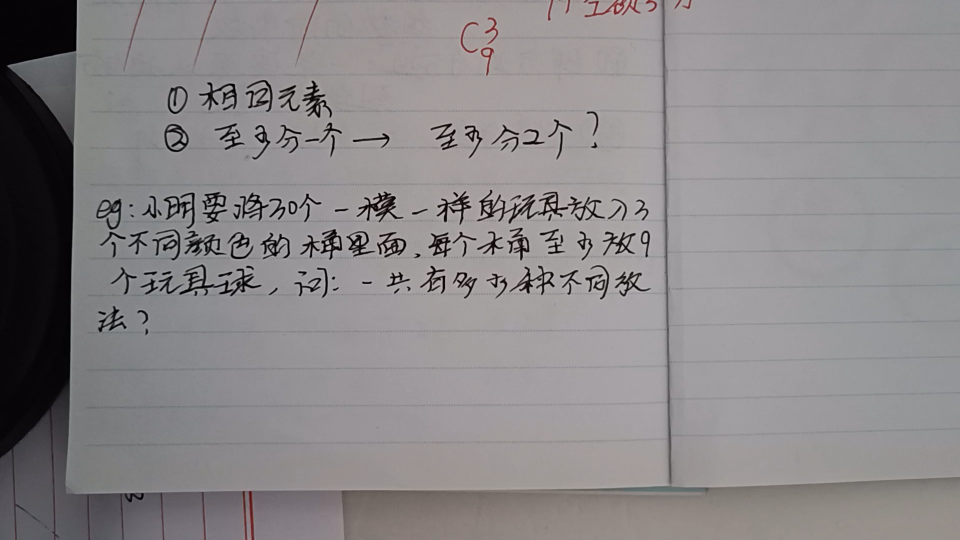 C 3 9
① 相同元素
② 至多分一个 → 至多分2个?
eg:小明要将30个一模一样的玩具放入3
个不同颜色的桶里面,每个桶至多放9
个玩具球,问:一共有多少种不同放
法?